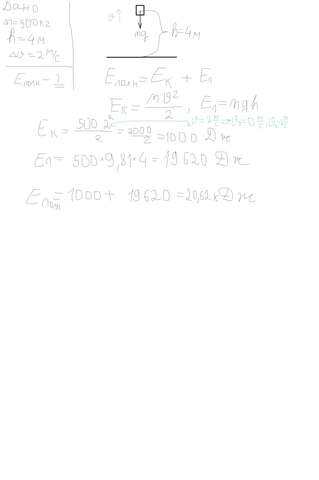 Дано
m=500кг
h=4м
Δv=2м/с
Eполн - ?
v↑
mg
h=4м
Eполн = Eк + Eп
Eк = mv²/2, Eп = mgh
Eк = 500·2²/2 = 2000/2 = 1000 Дж
Eп = 500·9,81·4 = 19620 Дж
Eполн = 1000 + 19620 = 20,62 кДж